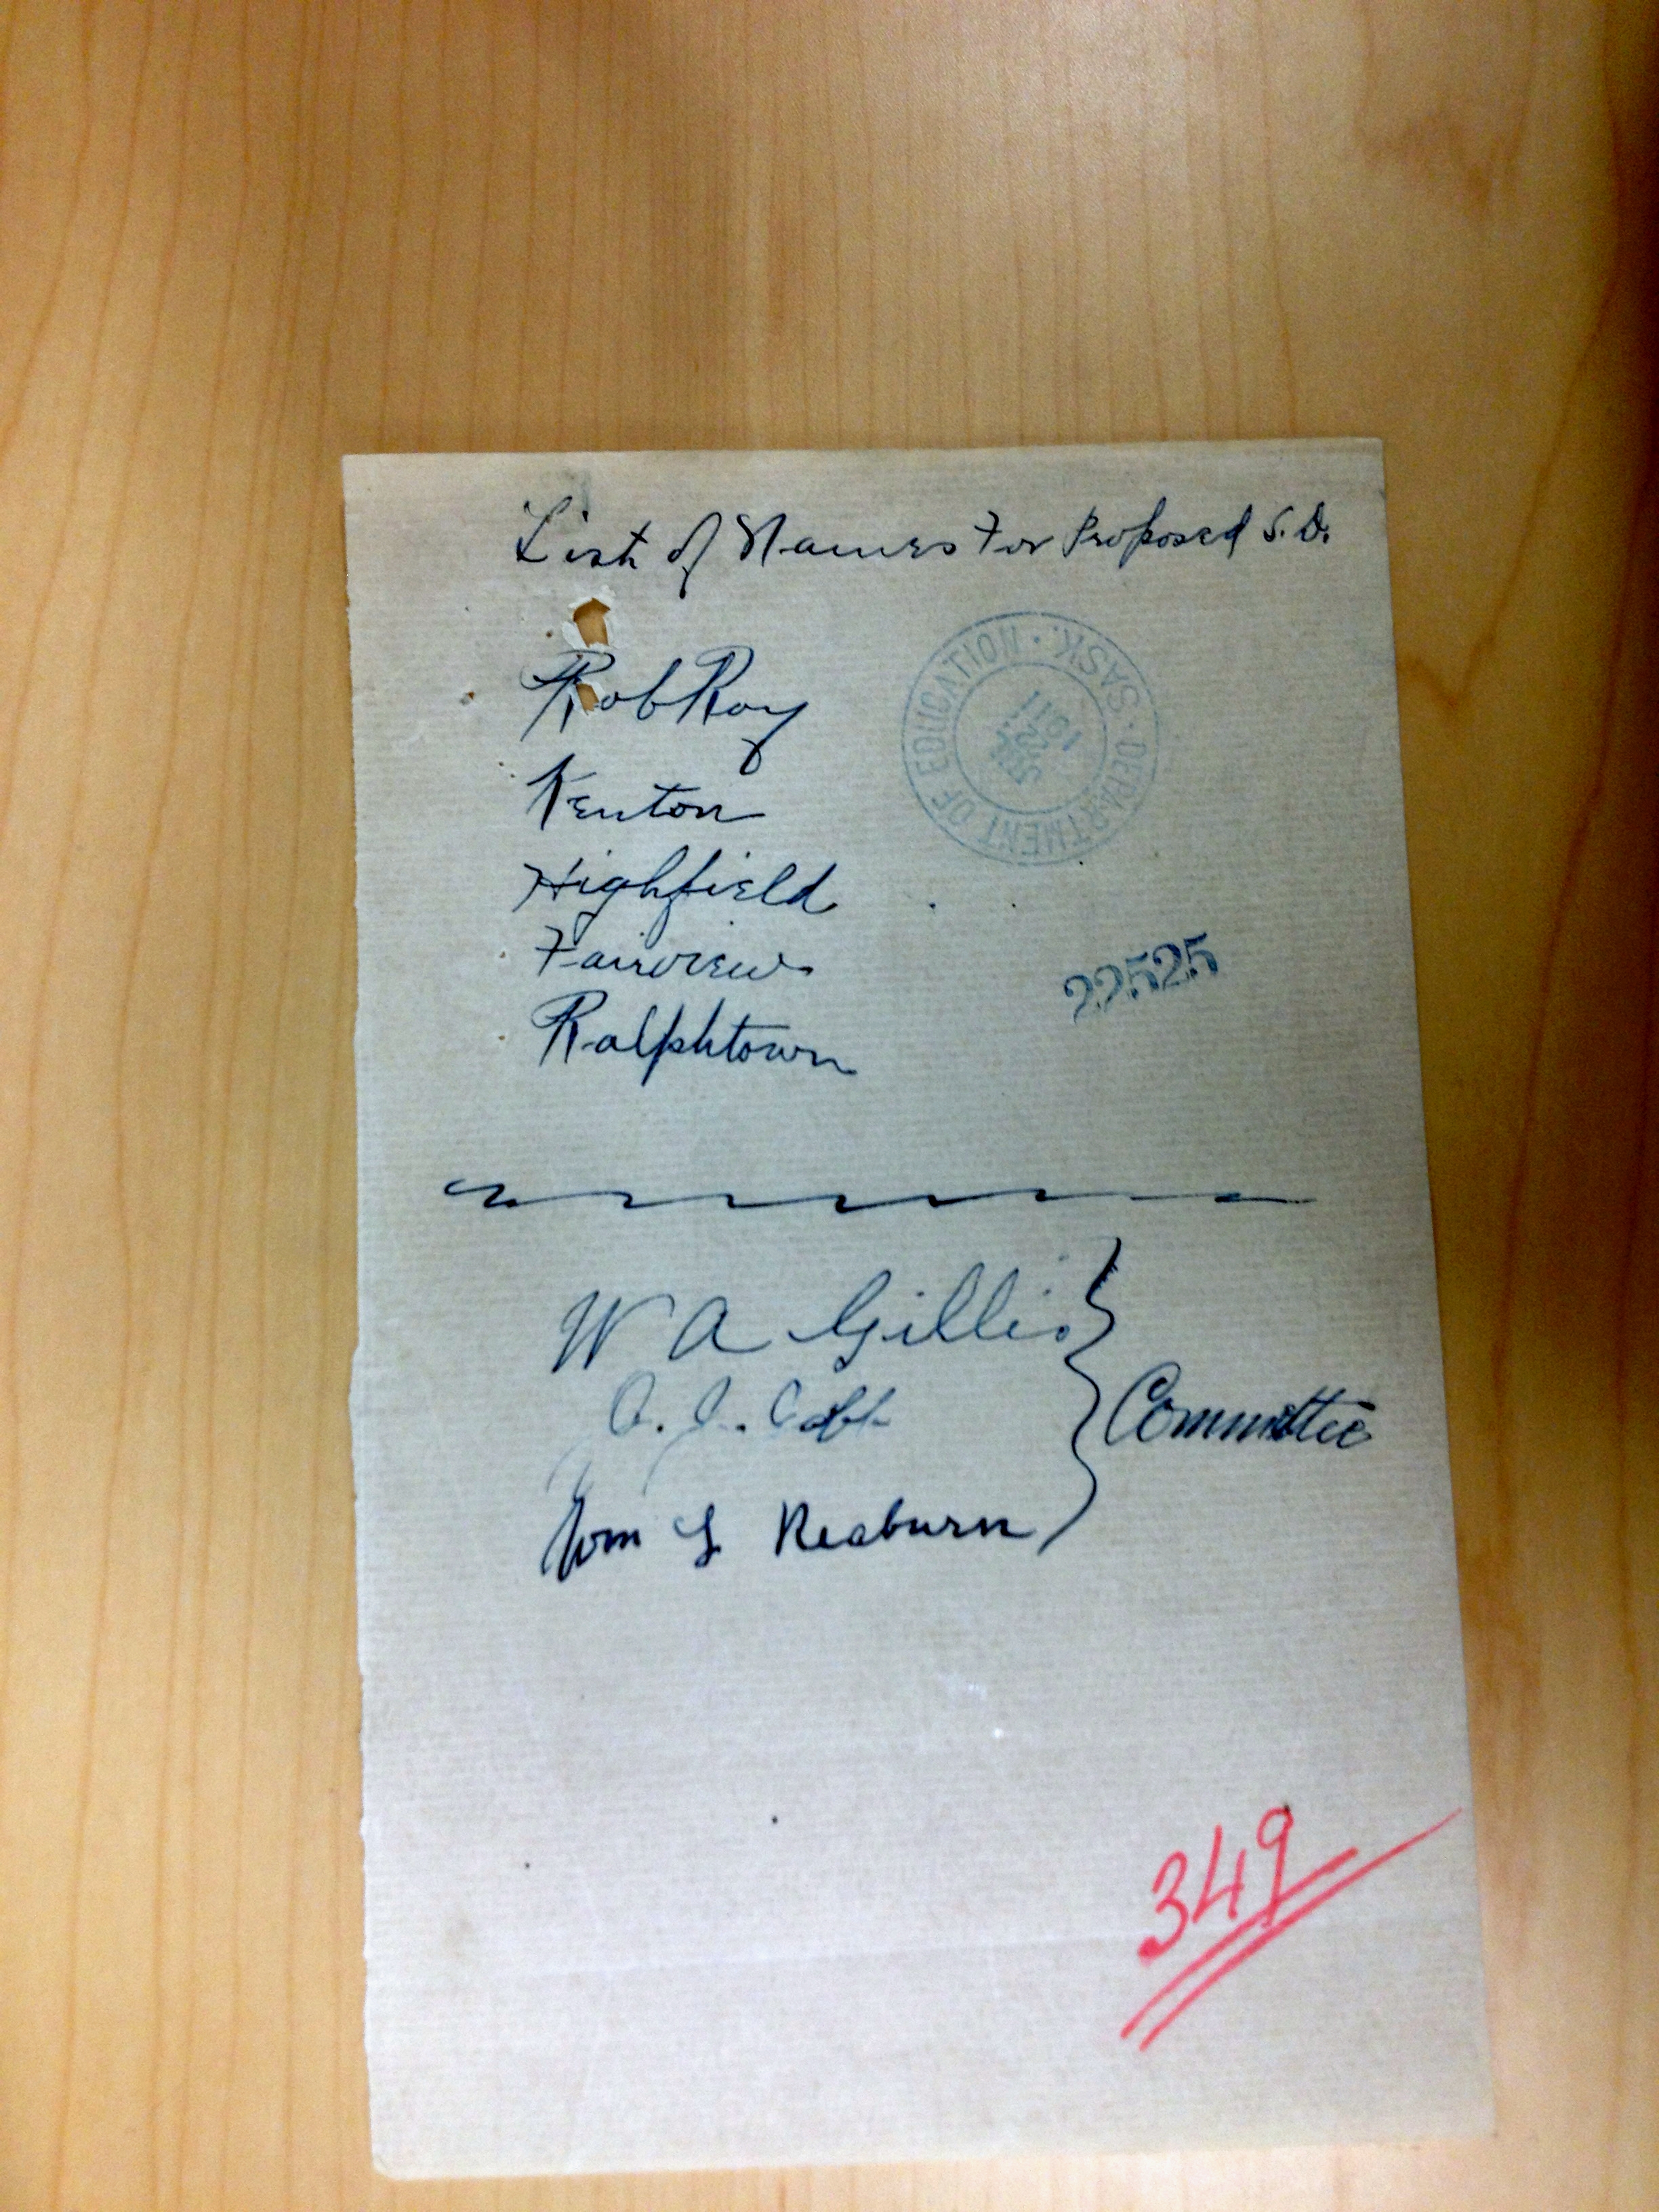 List of Names For Proposed S.D.
Rob Roy
Kenton
Highfield
Fairview
Ralphtown
DEPARTMENT OF EDUCATION · SASK.
1911
22525
W A Gillis
Committee
Tom L Reaburn
349